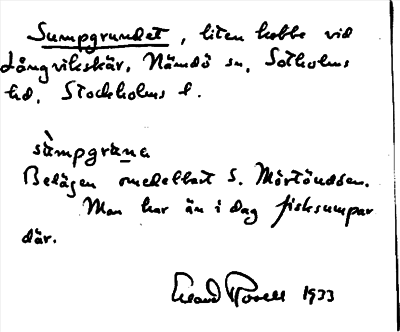 Sumpgrundet, liten kobbe vid
Långvikskär, Nämdö sn, Sotholms
hd, Stockholms l.
sùmpgrµna
Belägen omedelbart S. Mörtöudden.
Man har än i dag fisksumpar
där.
Erland Rosell 1933